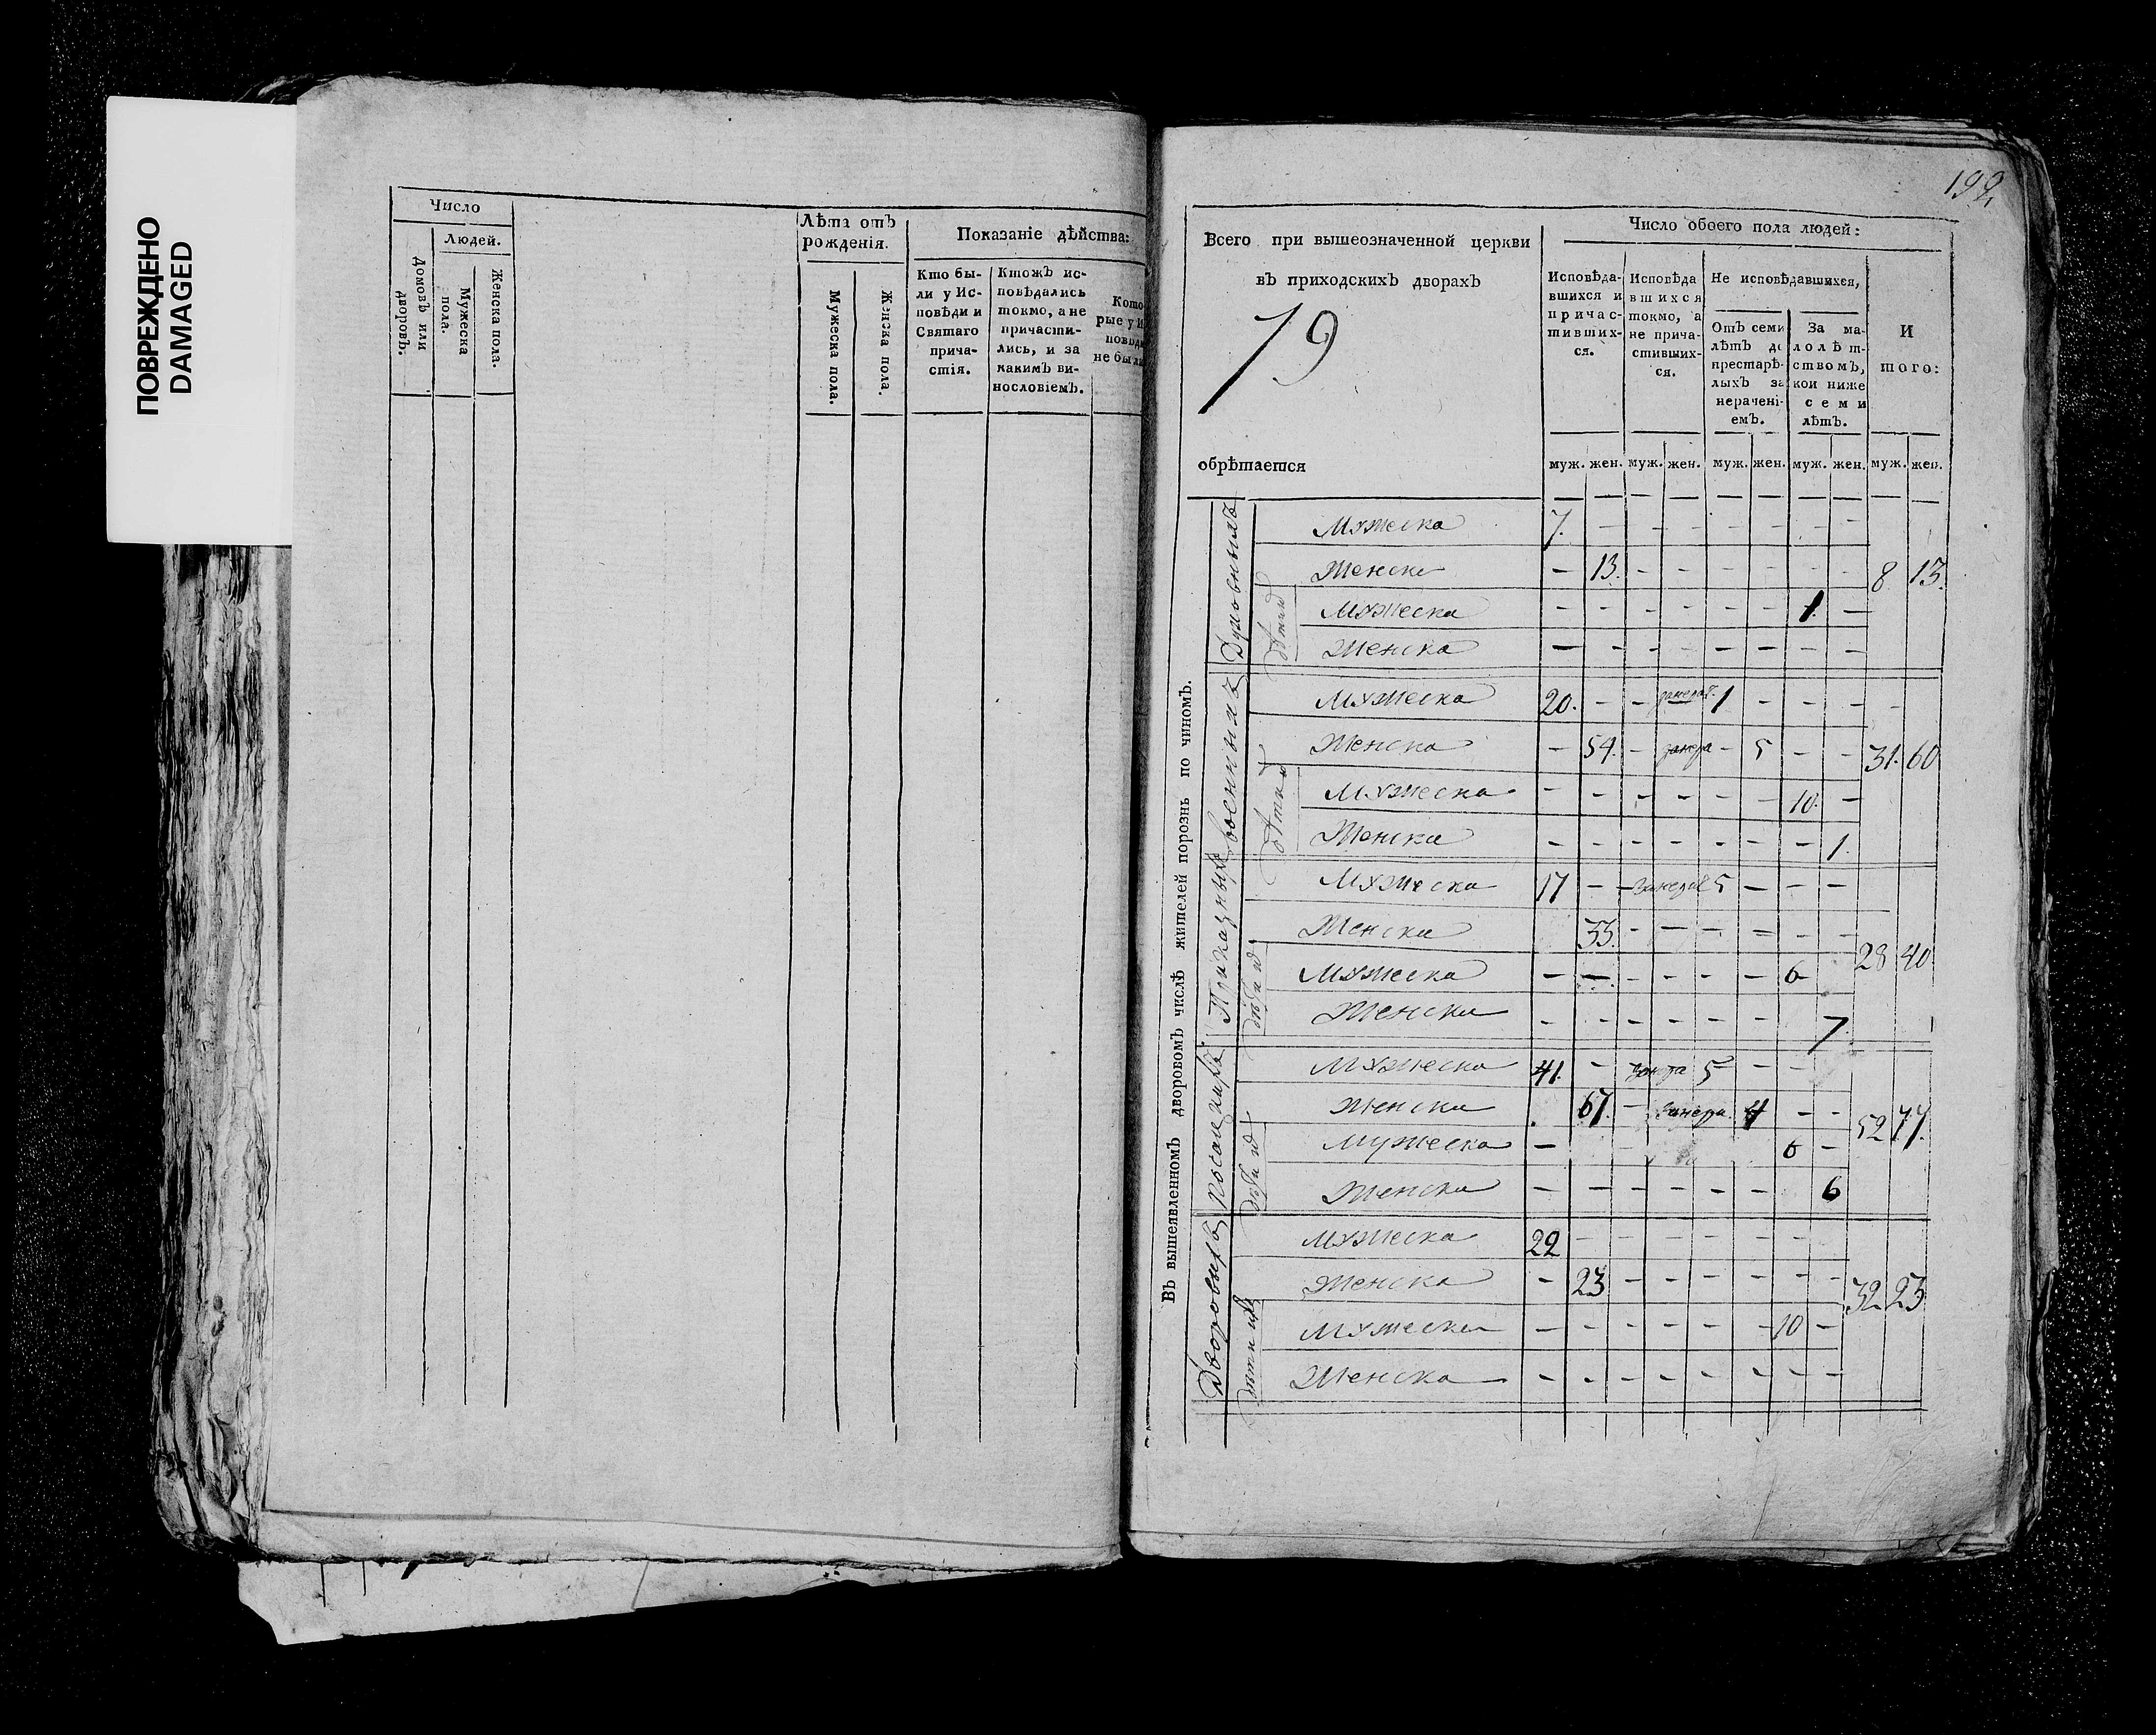 ПОВРЕЖДЕНО
DAMAGED
Число
Людей.
Домовъ или
дворовъ.
Мужеска
пола.
Женска пола.
Лѣта отъ
рожденія.
Мужеска пола.
Женска пола.
Показаніе дѣйства:
Кто бы-
ли у Ис-
повѣди и
Святаго
прича-
стія.
Ктожъ ис-
повѣдались
токмо, а не
причасти-
лись, и за
какимъ ви-
нословіемъ.
Кото-
рые у И
повѣди
не были
199
Всего при вышеозначенной церкви
въ приходскихъ дворахъ
79
обрѣтается
Число обоего пола людей:
Исповѣда-
вшихся и
причас-
тивших-
ся.
Исповѣда
вшихся
токмо, а
не прича-
стивших-
ся.
Не исповѣдавшихся,
Отъ семи
лѣтъ до
престарѣ-
лыхъ за
нерачені-
емъ.
За ма-
лолѣт-
ствомъ,
кои ниже
семи
лѣтъ.
И
того:
муж. жен. муж. жен. муж. жен. муж. жен. муж. жен.
Въ вышеявленномъ дворовомъ числѣ жителей порознь по чиномъ.
Духовныхъ
Мужеска 7. – – – – – – –
Женска – 13. – – – – – – 8 13.
дѣтей
Мужеска – – – – – – 1. –
Женска – – – – – – – –
военныхъ
Мужеска 20. – – 1 – – –
Женска – 54. – – 5 – – 31. 60
Мужеска – – – – – – 10. –
Женска – – – – – – – 1.
Приказныхъ
Мужеска 17 – – 5 – – –
Женска 33. – – – – – – 28 40
Мужеска – – – – – – 6 –
Женска – – – – – – – 7.
Мужеска 41. – 5 – –
Женска 67. – 4 – – 52 77.
Мужеска – 6 –
Женска – – – – – – 6
Дворовыхъ
Мужеска 22 – – – – – – –
Женска – 23 – – – – – – 32 23
Мужеска – – – – – – 10 –
Женска – – – – – – – –